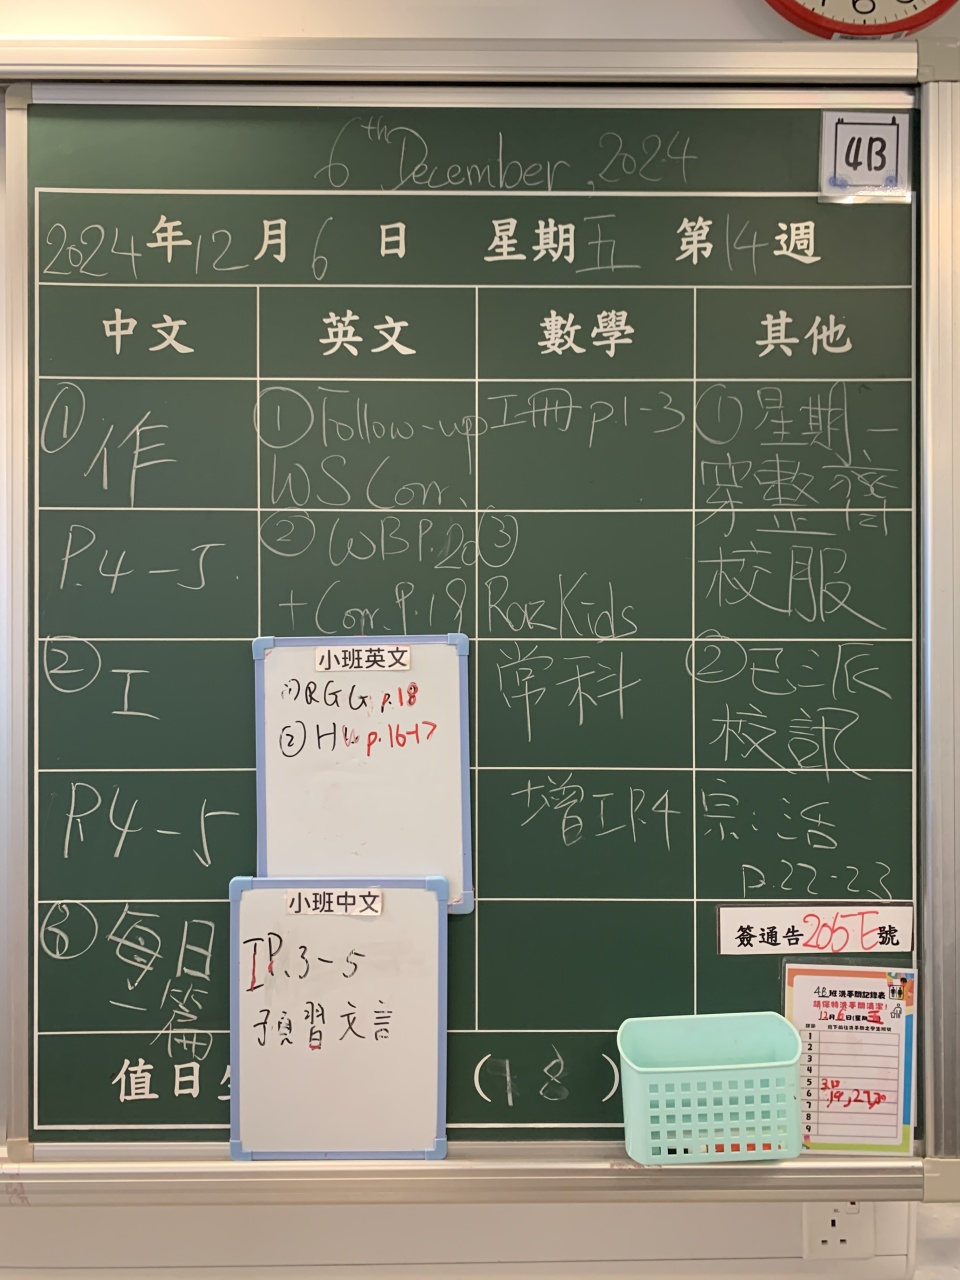 6th December, 2024
4B
2024年12月6日 星期五 第14週
中文 英文 數學 其他
① 作
P.4-5.
② 工
P.4-5
③ 每日
一篇
① Follow-up
WS Corr.
② WB P.20
+ Corr. P.18
工冊 p.1-3
③
RozKids
常科
增工P.4
① 星期一
穿整齊
校服
② 已派
校訊
宗:活
p.22-23
簽通告205E號
小班英文
① RGG p.18
② HW p.16-17
小班中文
工P.3-5
預習文言
值日生
(18)
4B班洗手間記錄表
請保持洗手間清潔!
12月6日(星期五)
1
2
3
4
5 30
6 19,27,30
7
8
9